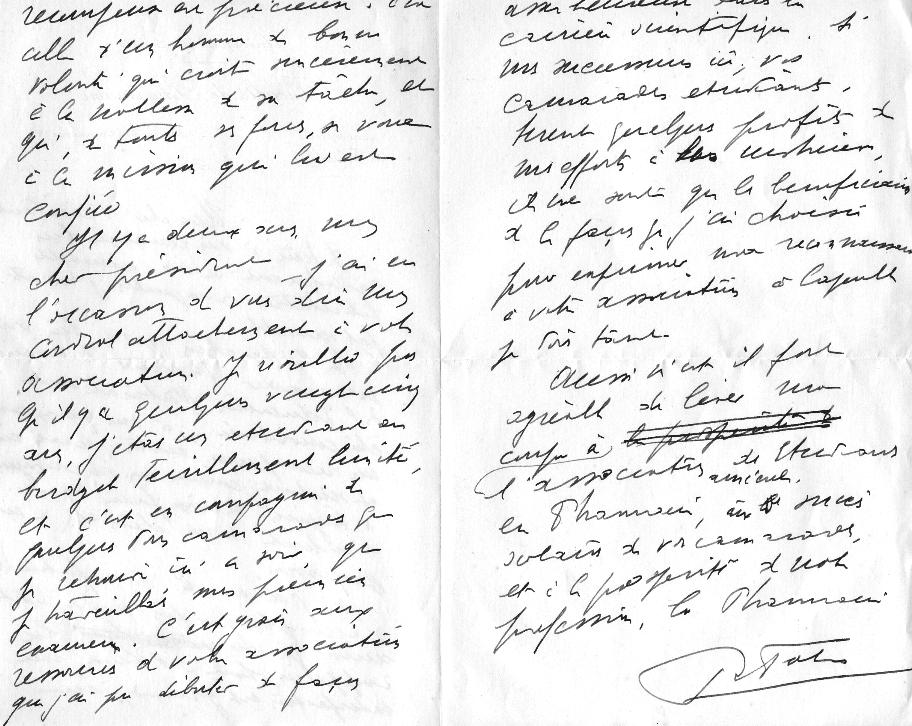 récompense est précieuse. C'en
celle d'un homme de bonne
volonté qui croit sincèrement
à la noblesse de sa tâche, et
qui, de toutes ses forces, se voue
à la mission qui lui est
confiée
Il y a deux ans, mon
cher président j'ai eu
l'occasion de vous dire mon
cordial attachement à votre
association. Je n'oublie pas
qu'il y a quelques vingt cinq
ans, j'étais un étudiant au
budget terriblement limité,
et c'est en compagnie de
quelques bons camarades que
je retrouve ici ce soir que
je travaillais mes premiers
examens. C'est grâce aux
ressources de votre association
que j'ai pu débuter de façon
assez heureuse dans la
carrière scientifique. Si
mes successeurs ici, vos
camarades étudiants,
tirent quelques profits de
mes efforts à les instruire,
ils ne sont que les bénéficiaires
de la façon que j'ai choisie
pour exprimer ma reconnaissance
à votre association à laquelle
je dois tant.
Aussi m'est il fort
agréable de lever mon
coupe à la prospérité de
l'association amicale des Etudians
en Pharmacie, aux succès
scolaires de vos camarades,
et à la prospérité de notre
profession, la Pharmacie